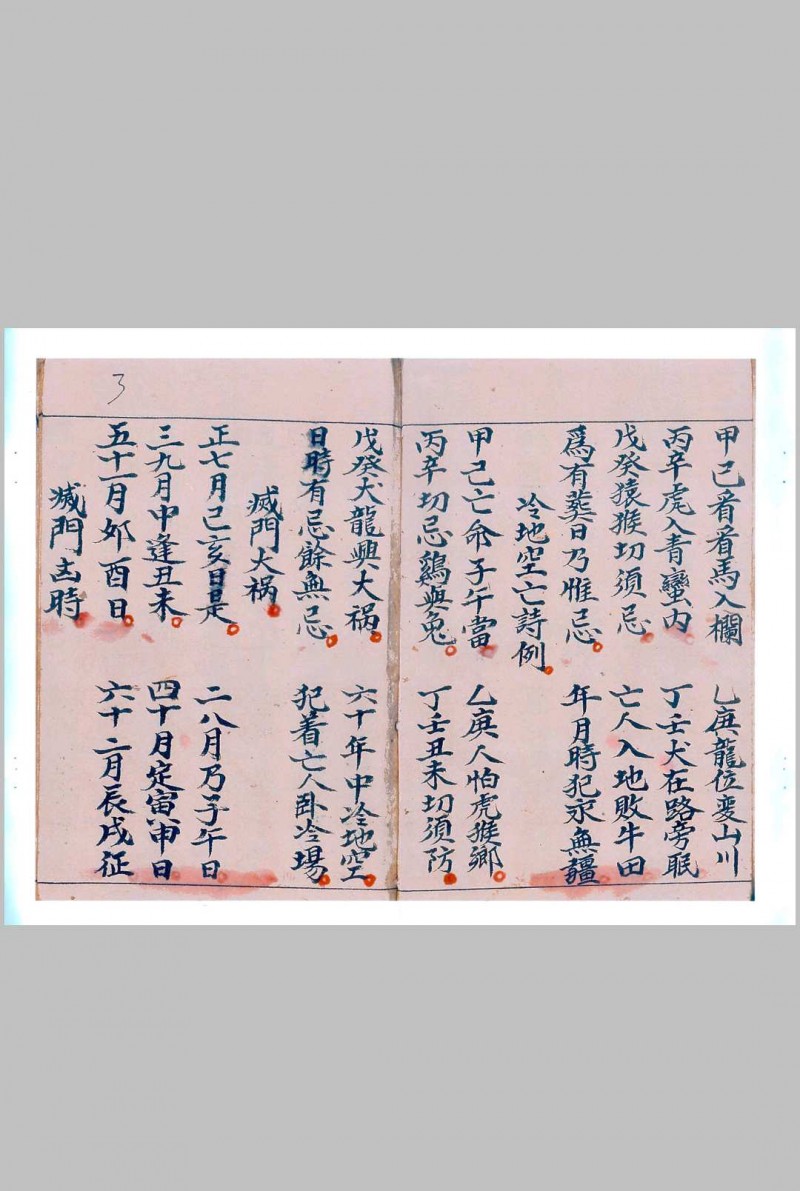 甲己看看馬入欄　乙庚龍位变山川
丙辛虎入青蠻内　丁壬犬在路旁眠
戊癸猿猴切須忌　亡人入地敗牛田
爲有葬日乃惟忌　年月時犯永無疆
冷地空亡詩例
甲己亡命子午當　乙庚人怕虎猴鄉
丙辛切忌鷄與兔　丁壬丑未切須防
戊癸犬龍興大祸　六十年中冷地空
日時有忌餘無忌　犯着亡人卧冷場
滅門大祸
正七月己亥日是　二八月乃子午日
三九月中逢丑未　四十月定寅申日
五十一月夘酉日　六十二月辰戌征
滅門凶時
3